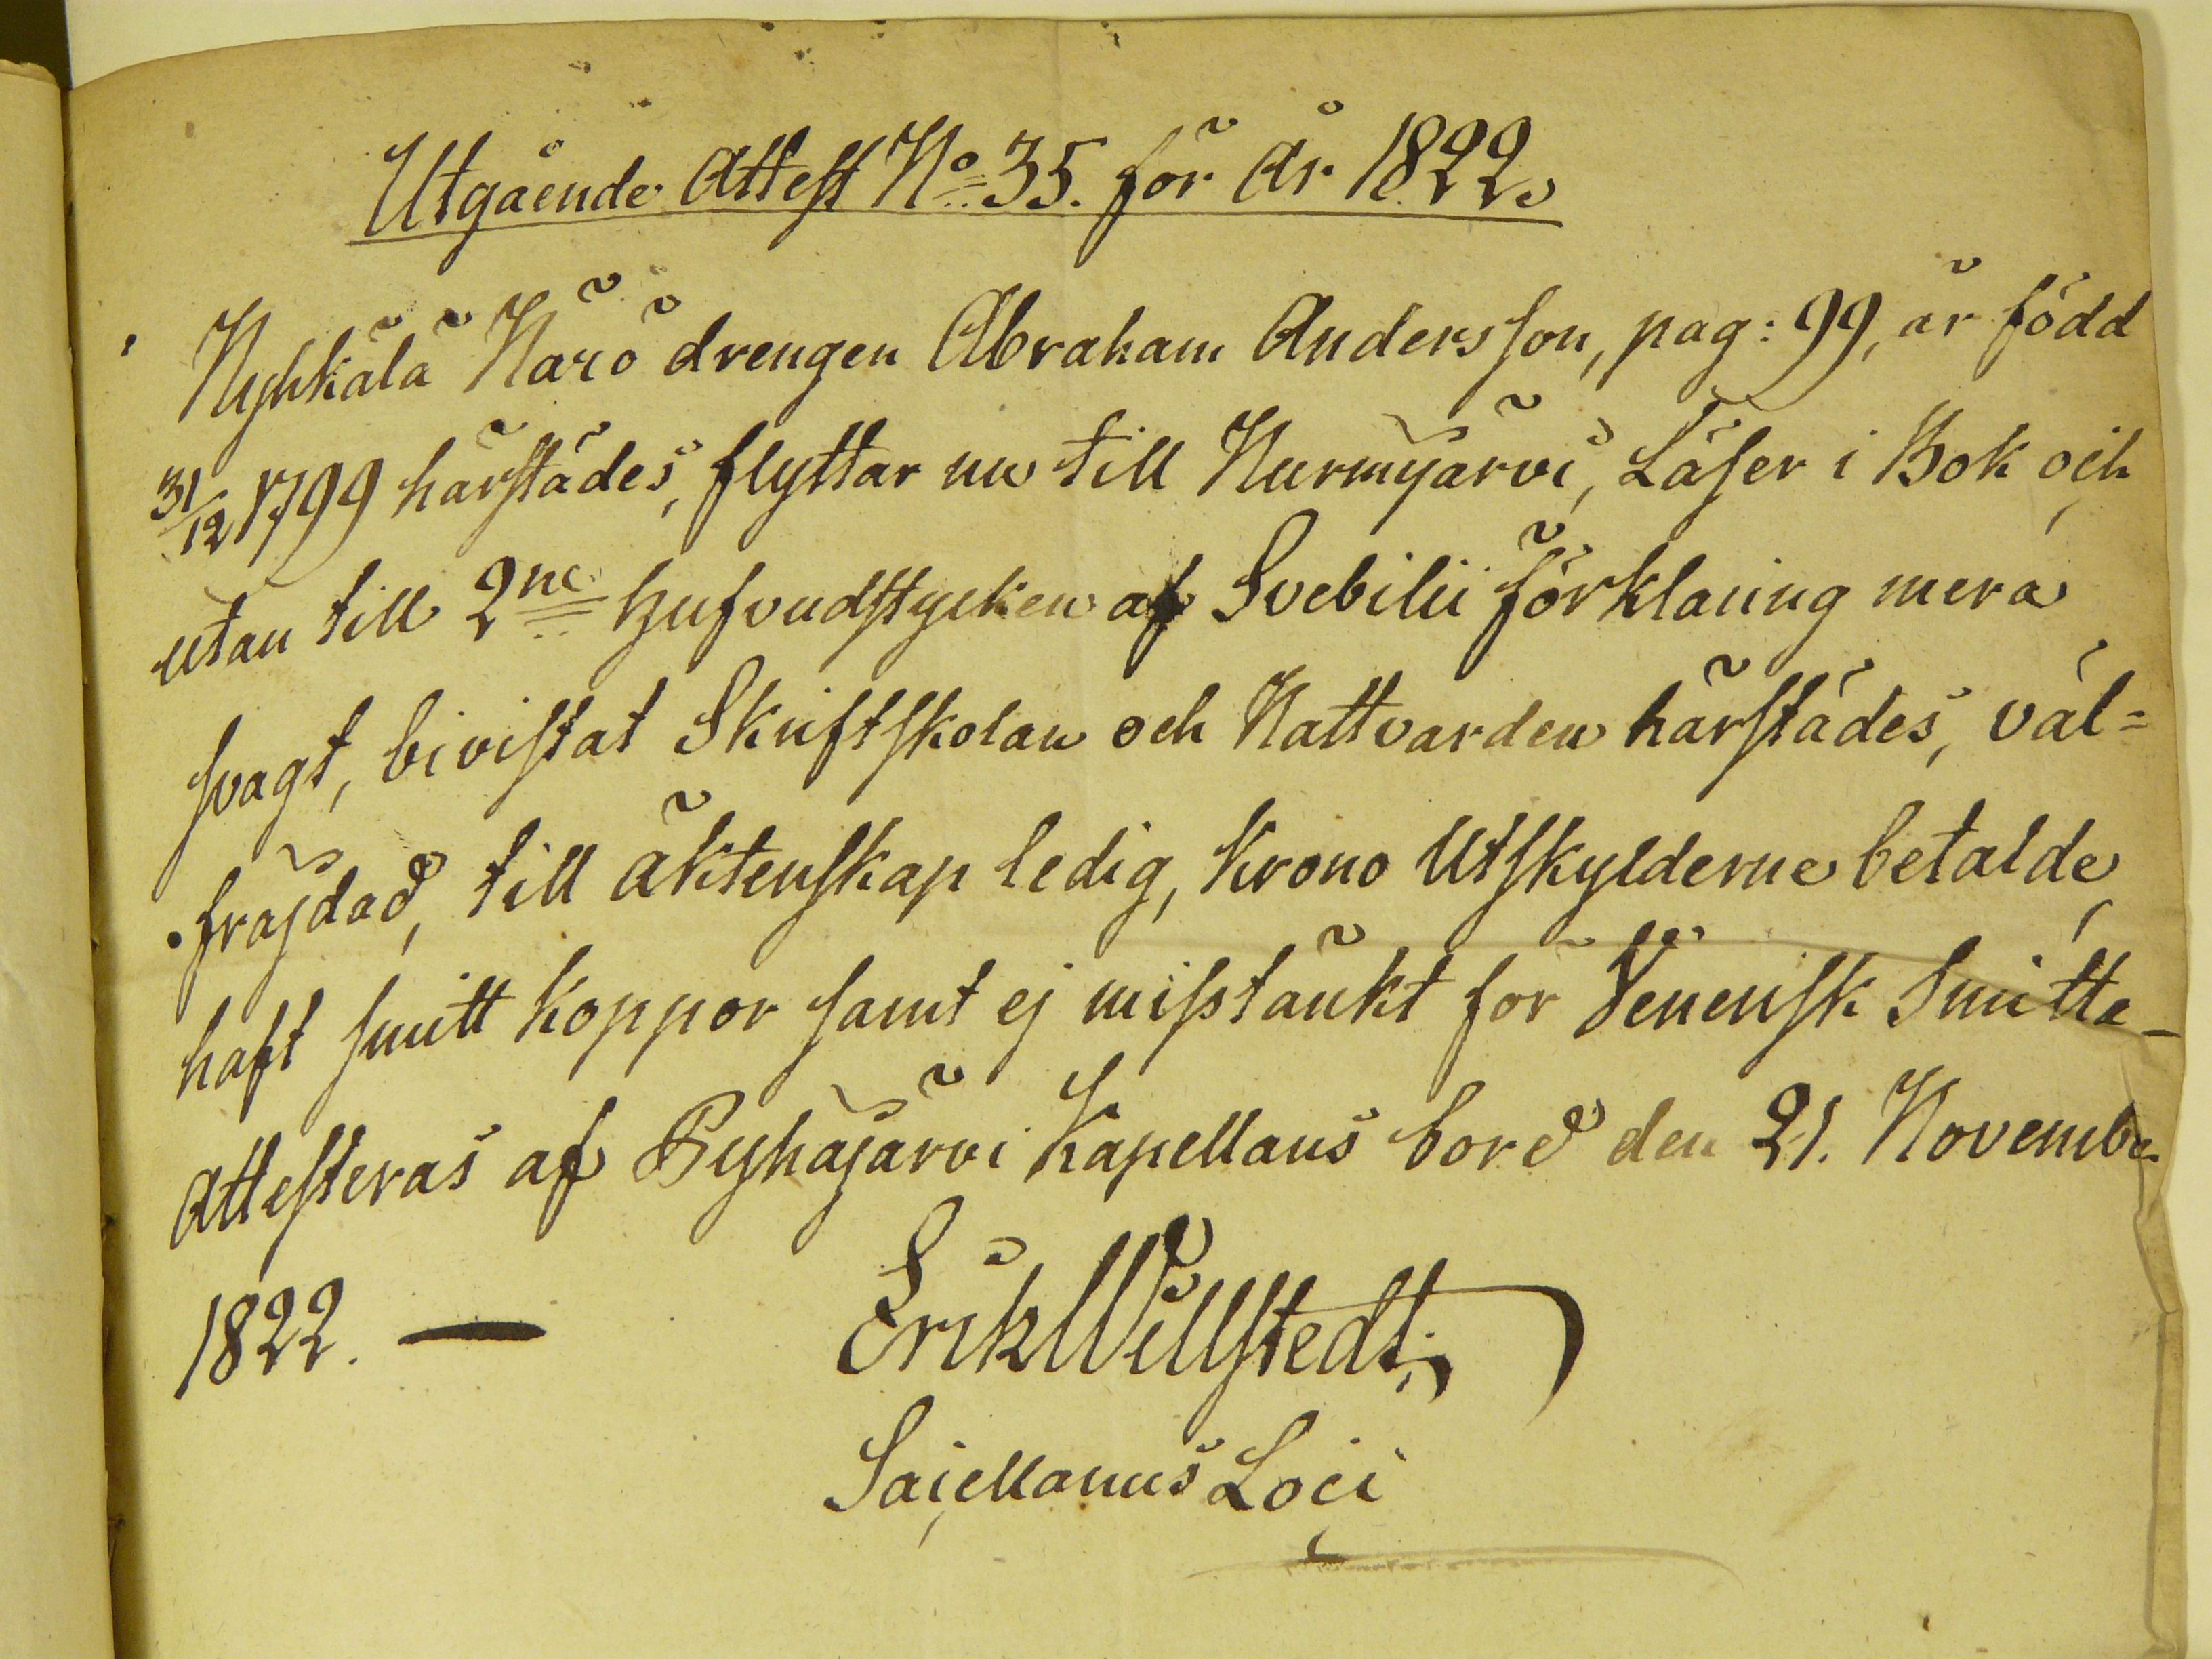 Utgående Attest No 35. för År 1822.
Nyhkälä Närö drengen Abraham Andersson, pag: 99, är född
31/12 1799 härstädes, flyttar nu till Nurmijärvi, Läser i Bok och
utan till 2ne Hufvudstycken af Svebilii förklaring mera
svagt, bivistat Skriftskolan och Nattvarden härstädes, väl=
fräjdad, till äktenskap ledig, Krono Utskylderne betalde,
haft smitt koppor samt ej misstänkt för Venerisk Smitta_
Attesteras af Pyhäjärvi Kapellans bord den 21. November
1822. —
Erik Willstedt
Sacellanus Loci